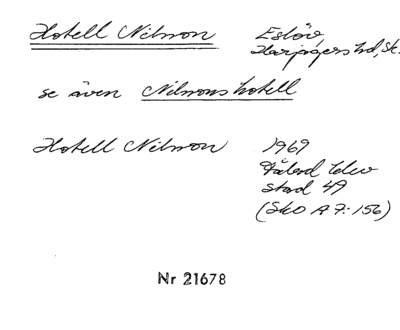 Hotell Nilsson Eslöv,
Harjagers hd, Sk.
se även Nilssons hotell
Hotell Nilsson 1969
stad 49
(SkO A 7:156)
Nr 21678